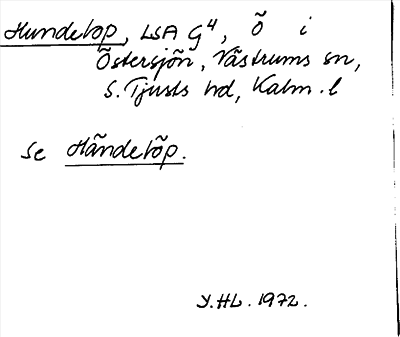 Hundetop, LSA G4, Ö i
Östersjön, Västrums sn,
S. Tjusts hd, Kalm. l
se Händetöp.
Y. HL. 1972.